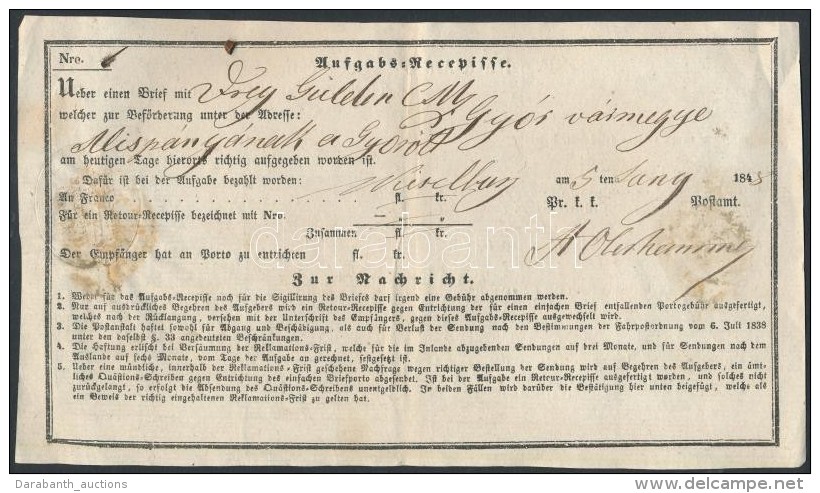 Nro. 6
Aufgabs-Recepisse.
Ueber einen Brief mit Drey Gulden CM
welcher zur Beförderung unter der Adresse: Győr vármegye
Alispánjának a Győrött
am heutigen Tage hierorts richtig aufgegeben worden ist.
Dafür ist bei der Aufgabe bezahlt worden: Wieselburg am 5 ten 184
An Franco . . . . fl. kr. Pr. k. k. Postamt.
Für ein Retour-Recepisse bezeichnet mit Nro. — „ „
Zusammen fl. kr.
Der Empfänger hat an Porto zu entrichten fl. kr.
Zur Nachricht.
1. Weder für das Aufgabs-Recepisse noch für die Sigillirung des Briefes darf irgend eine Gebühr abgenommen werden.
2. Nur auf ausdrückliches Begehren des Aufgebers wird ein Retour-Recepisse gegen Entrichtung der für einen einfachen Brief entfallenden Portogebühr ausgefertigt,
welches nach der Rücklangung, versehen mit der Unterschrift des Empfängers, gegen dieses Aufgabs-Recepisse ausgewechselt wird.
3. Die Postanstalt haftet sowohl für Abgang und Beschädigung, als auch für Verlust der Sendung nach den Bestimmungen der Fahrpostordnung vom 6. Juli 1838
unter den daselbst §. 33 angedeuteten Beschränkungen.
4. Die Haftung erlischt bei Versäumung der Reklamations-Frist, welche für die im Inlande abzugebenden Sendungen auf drei Monate, und für Sendungen nach dem
Auslande auf sechs Monate, vom Tage der Aufgabe an gerechnet, festgesetzt ist.
5. Ueber eine mündliche, innerhalb der Reklamations-Frist geschehene Nachfrage wegen richtiger Bestellung der Sendung wird auf Begehren des Aufgebers, ein ämt-
liches Quästions-Schreiben gegen Entrichtung des einfachen Briefporto abgesendet. Ist bei der Aufgabe ein Retour-Recepisse ausgefertigt worden, und solches nicht
zurückgelangt, so erfolgt die Absendung des Quästions-Schreibens unentgeldlich. In beiden Fällen wird darüber die Bestätigung hier unten beigefügt, welche als
ein Beweis der richtig eingehaltenen Reklamations-Frist zu gelten hat.
darabanth
Darabanth_auctions
delcampe.net